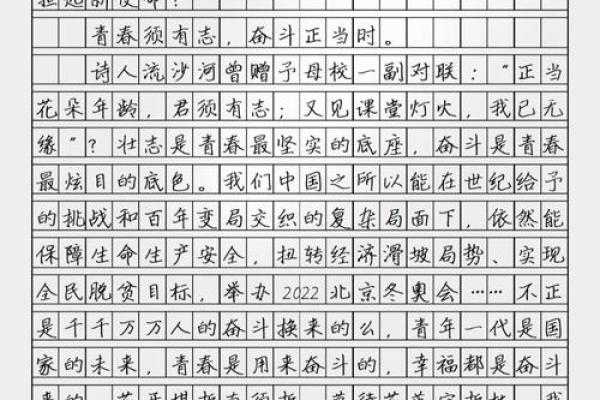 担起新使命？
青春须有志，奋斗正当时。
诗人流沙河曾赠予母校一副对联："正当
花朵年龄，君须有志；又见课堂灯火，我已无
缘"？壮志是青春最坚实的底座，奋斗是青春
最炫目的底色。我们中国之所以能在世纪给予
的挑战和百年变局交织的复杂局面下，依然能
保障生命生产安全，扭转经济滑坡局势、实现
全民脱贫目标，举办2022北京冬奥会……不正
是千千万万人的奋斗换来的么，青年一代是国
家的未来，青春是用来奋斗的，幸福都是奋斗
来的